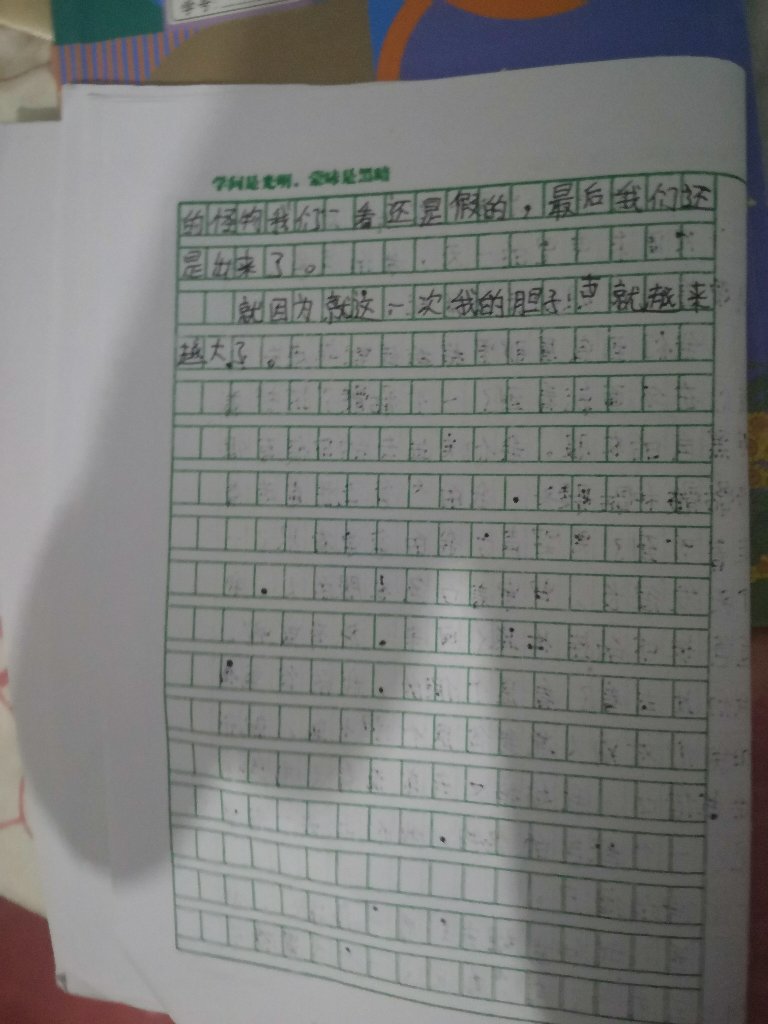 学号
学问是光明，蒙昧是黑暗
的怪物我们一看还是假的，最后我们还
是出来了。
就因为就这一次我的胆子！也就越来
越大了。